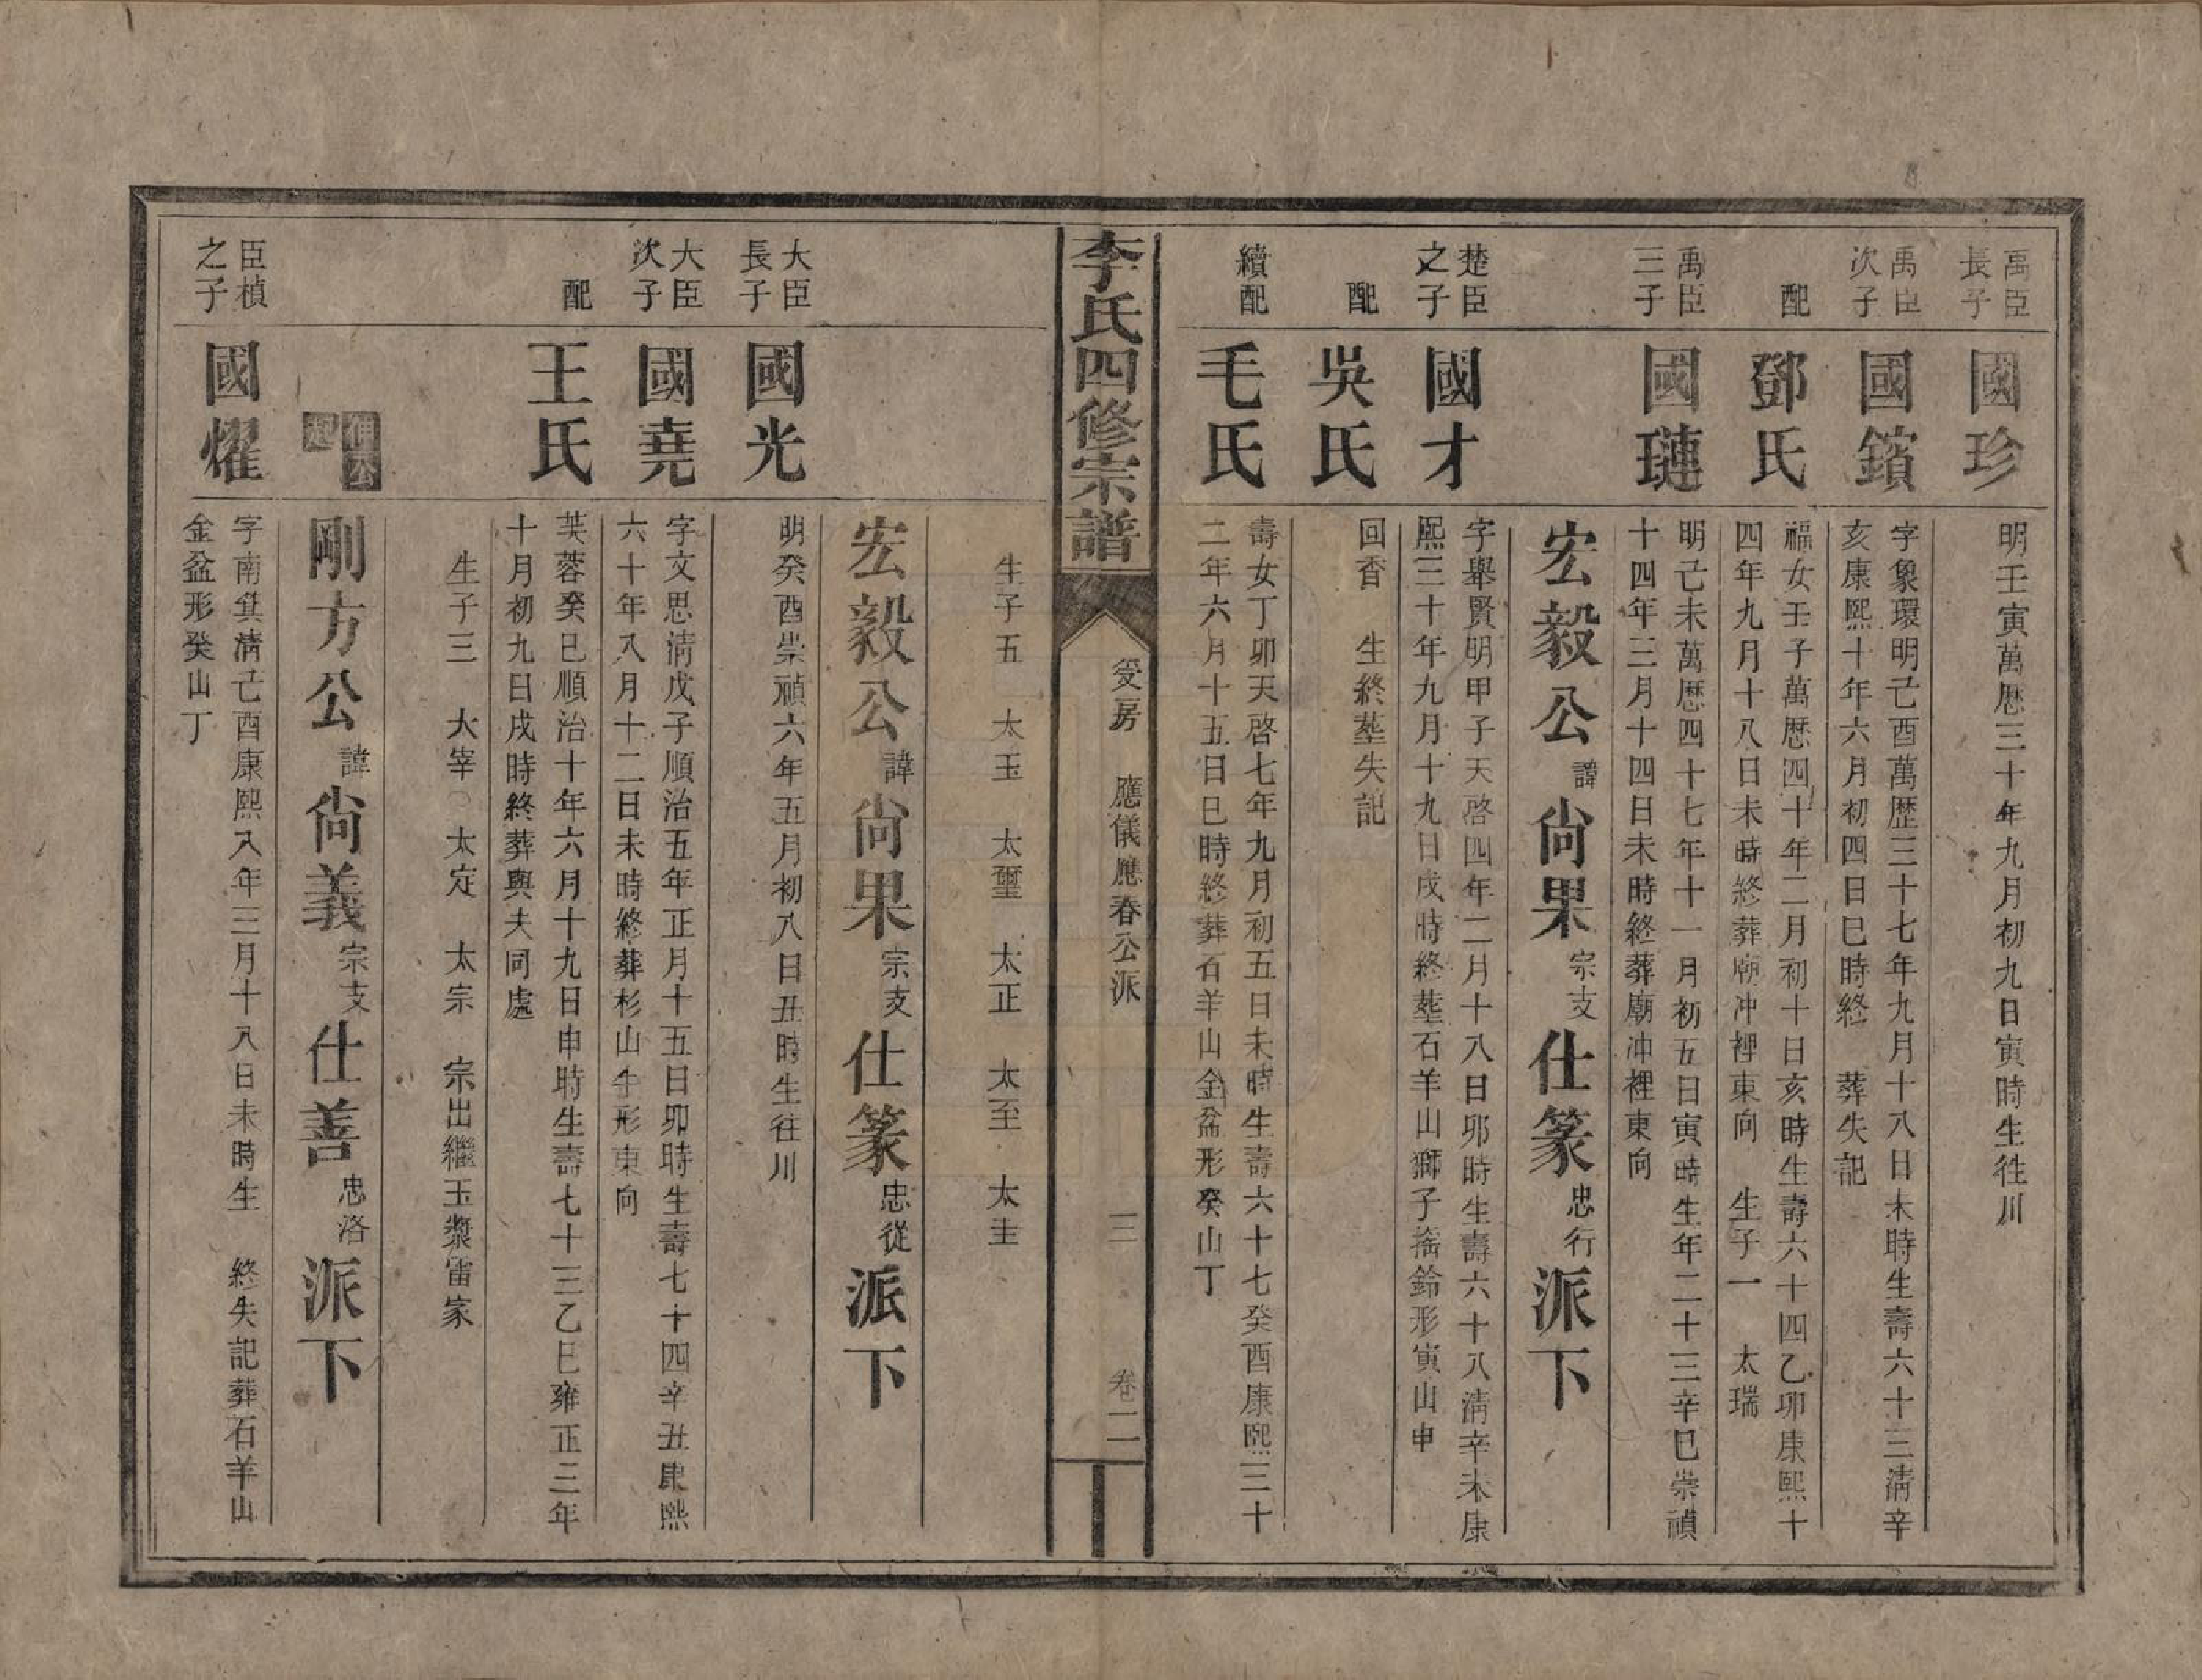 禹臣長子
國珍
明壬寅萬歷三十年九月初九日寅時生徃川
禹臣次子
國鑌
字象環明己酉萬歷三十七年九月十八日未時生壽六十三淸辛
亥康熙十年六月初四日巳時終　葬失記
配
鄧氏
福女壬子萬歷四十年二月初十日亥時生壽六十四乙卯康熙十
四年九月十八日未時終葬廟冲裡東向　生子一　太瑞
禹臣三子
國璉
明己未萬歷四十七年十一月初五日寅時生年二十三辛巳崇禎
十四年三月十四日未時終葬廟冲裡東向
宏毅公諱尙果宗支仕篆忠行派下
楚臣之子
國才
字舉賢明甲子天啓四年二月十八日卯時生壽六十八淸辛未康
熙三十年九月十九日戌時終塟石羊山獅子搖鈴形寅山申
配
吳氏
回香　生終塟失記
續配
毛氏
壽女丁卯天啓七年九月初五日未時生壽六十七癸酉康熙三十
二年六月十五日巳時終葬石羊山金盆形癸山丁
李氏四修宗譜
受房　應儀應春公派
三
卷二
生子五　太玉　太璽　太正　太至　太圭
宏毅公諱尙果宗支仕篆忠從派下
大臣長子
國光
明癸酉崇禎六年五月初八日丑時生徃川
大臣次子
國堯
字文思淸戊子順治五年正月十五日卯時生壽七十四辛丑康熙
六十年八月十二日未時終葬杉山牛形東向
配
王氏
芙蓉癸巳順治十年六月十九日申時生壽七十三乙巳雍正三年
十月初九日戌時終葬與夫同處
生子三　大宰　太定　太宗　宗出繼玉漿雷家
公
起
剛方公諱尙義宗支仕善忠洛派下
臣楨之子
國燿
字南箕淸己酉康熙八年三月十八日未時生　終失記葬石羊山
金盆形癸山丁